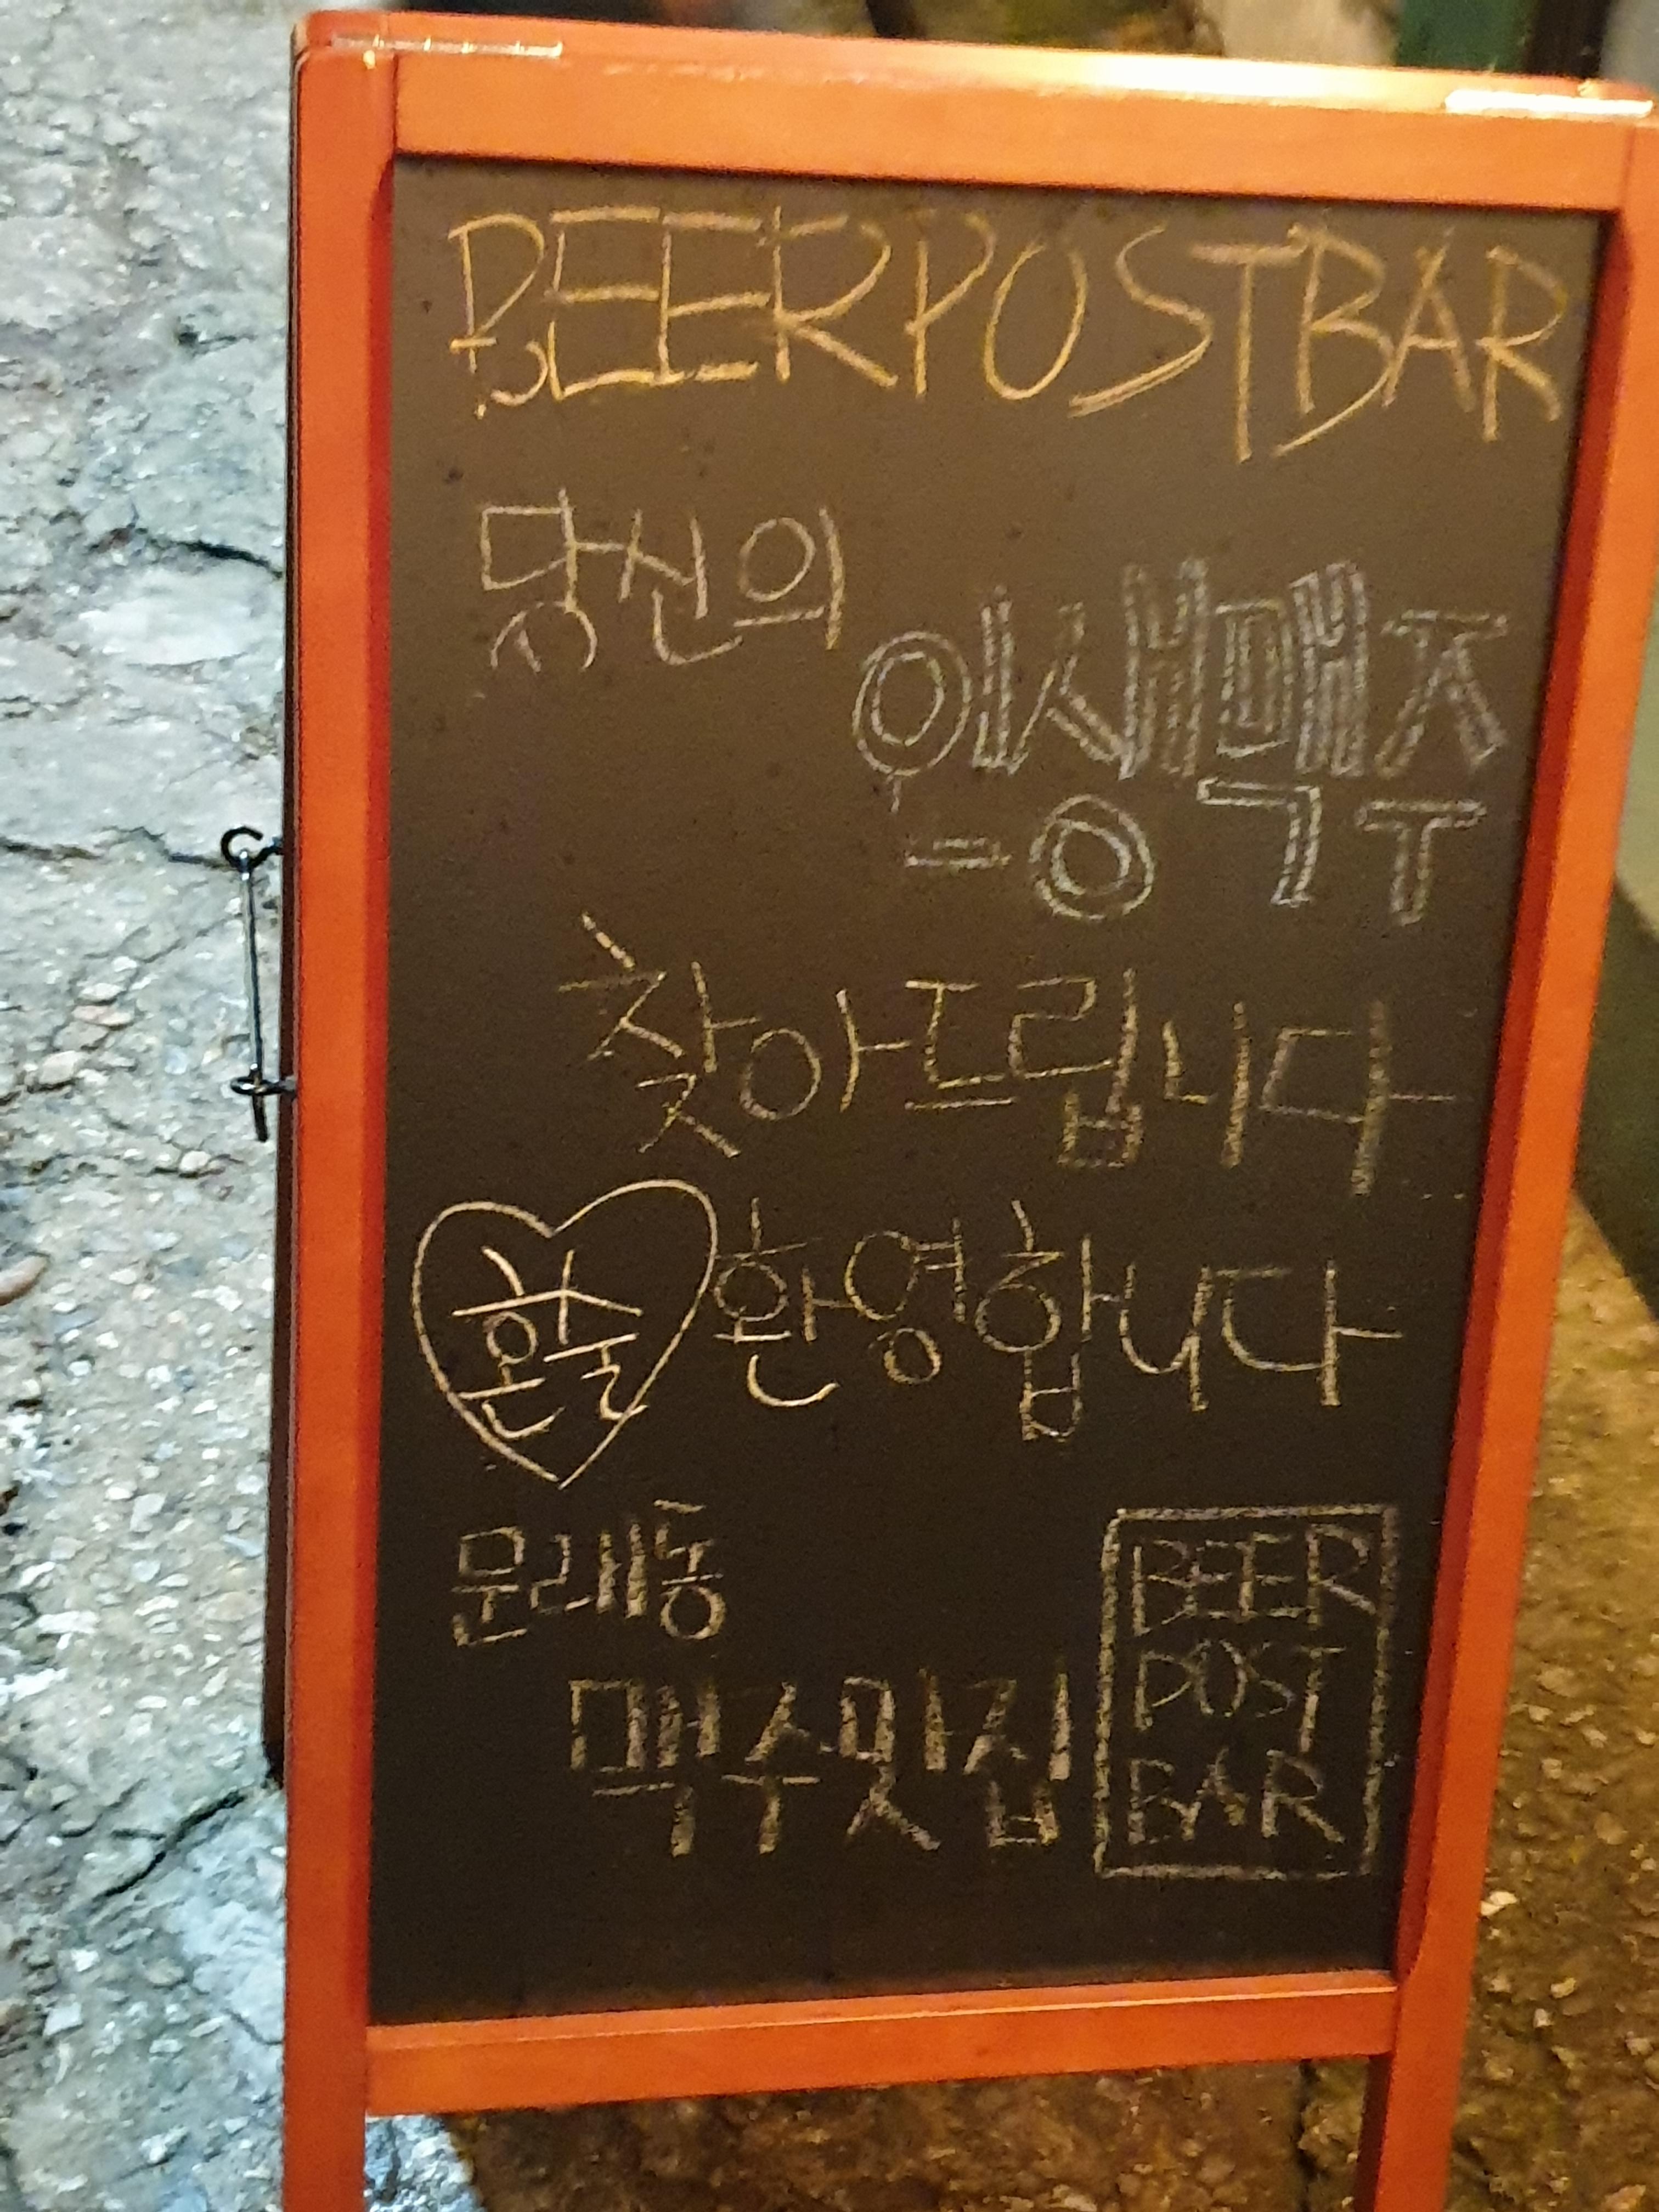 BEERPOSTBAR
당신의
인생맥주
찾아드립니다
혼술 환영합니다
문래동
맥주맛집
BEER
POST
BAR